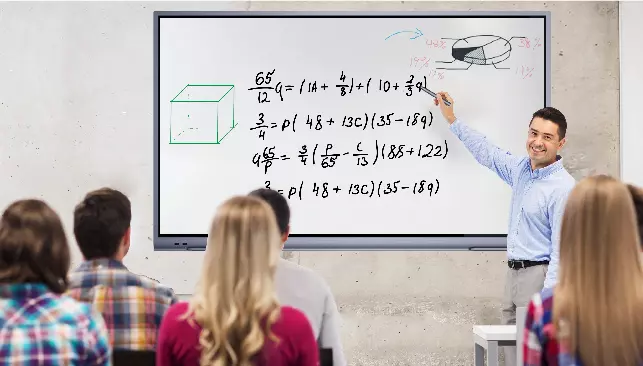 65/12 q = (1A + 4/8) + ( 10 + 3/3 q)
3/4 = P( 48 + 13C)(35 - 18q)
q 65/P = 3/4 (P/65 - C/13)(88 + 122)
= P( 48 + 13C)(35 - 18q)